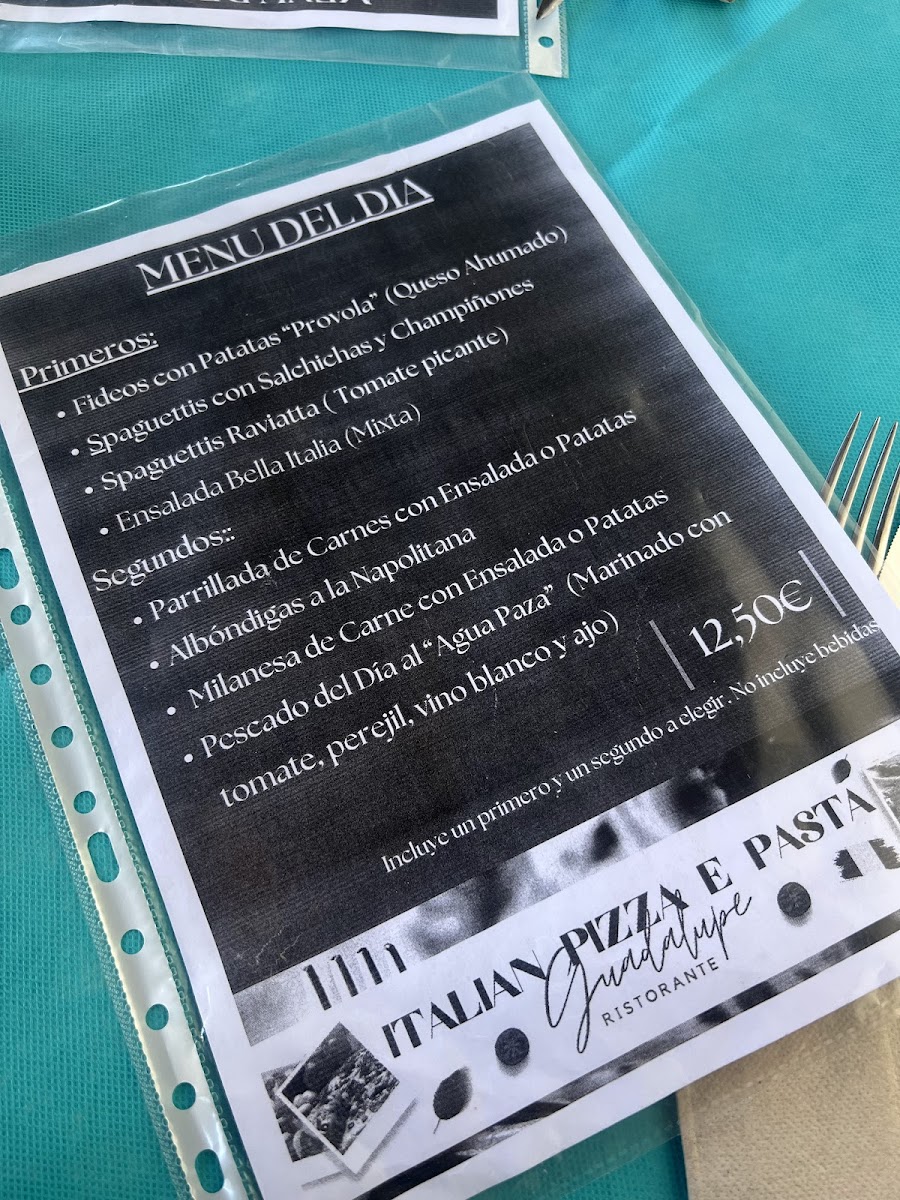 MENU DEL DIA
Primeros:
• Fideos con Patatas “Provola” (Queso Ahumado)
• Spaguettis con Salchichas y Champiñones
• Spaguettis Raviatta ( Tomate picante)
• Ensalada Bella Italia (Mixta)
Segundos::
• Parrillada de Carnes con Ensalada o Patatas
• Albóndigas a la Napolitana
• Milanesa de Carne con Ensalada o Patatas
• Pescado del Día al “Agua Paza” (Marinado con
tomate, perejil, vino blanco y ajo)
12,50€
Incluye un primero y un segundo a elegir. No incluye bebidas
ITALIAN PIZZA E PASTA
Guadalupe
RISTORANTE